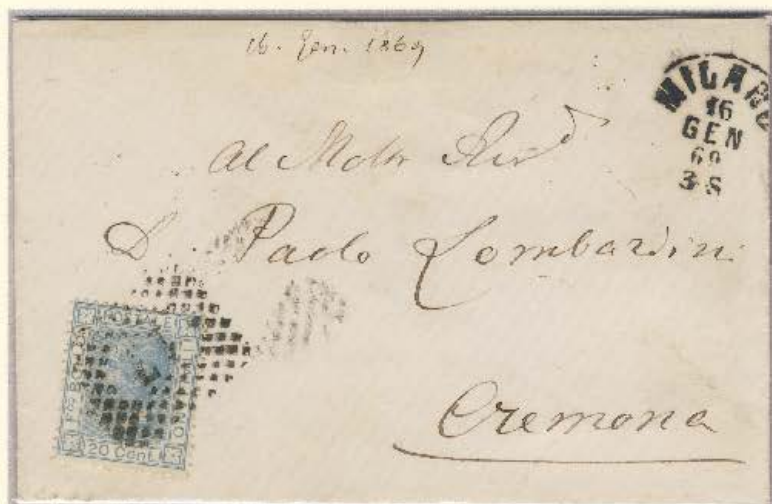 16. Gen. 1869
MILANO
16
GEN
69
3 S
Al Molto Rev<sup>d</sup>
D. Paolo Lombardini
Cremona
20 Cent